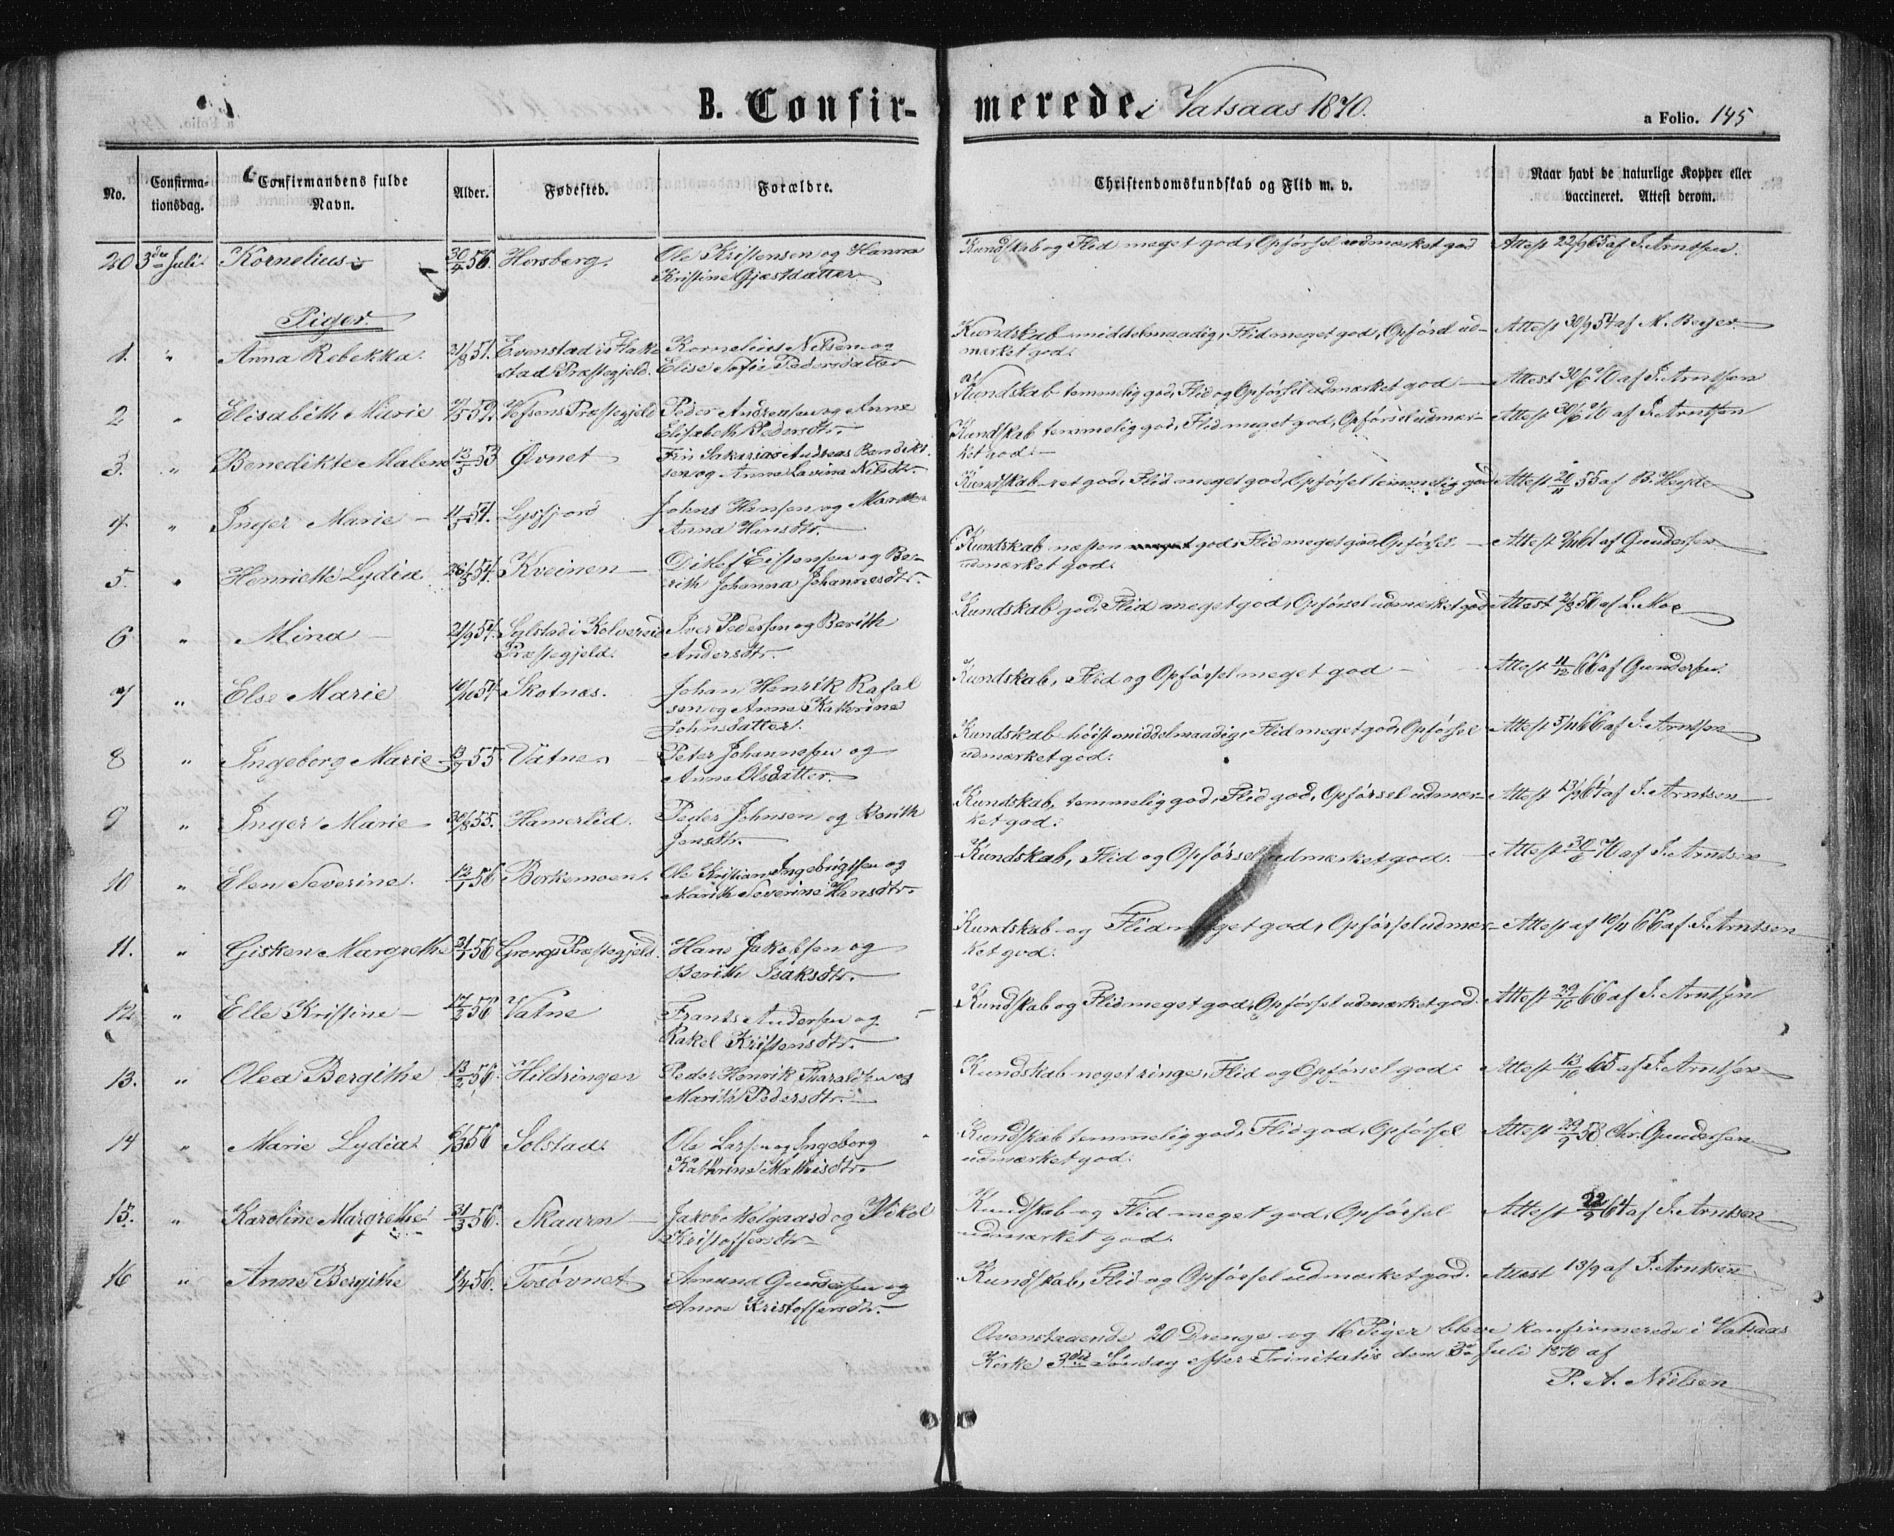 B. Confirmerede i Vatsaas 1870. a Folio. 145
No. Confirmationsdag. Confirmandens fulde Navn. Alder. Fødested. Forældre. Christendomskundskab og Flid m. v. Naar havt de naturlige Kopper eller vaccineret. Attest derom.
20 3die Juli Kornelius 56. Horsberg. Ole Kristensen og Hanna Kristine Gjæstdatter Kundskab og Flid meget god, Opførsel udmærket god Attest 22/9 65 af J. Arntsen.
Piger.
1. " Anna Rebekka. Evenstad i Flakkestad Præstegjeld. Kornelius Nilsen og Elise Sofie Pedersdatter Kundskab middelmaadig, Flid meget god, Opførsel udmærket god. Attest 30/9 54 af M. Beyer
2 " Elisabeth Marie Vefsens Præstegjeld Peder Andreassen og Anne Elisabeth Pedersdtr. Kundskab temmelig god, Flid og Opførsel udmærket god Attest 30/6 70 af J. Arntsen
3. " Benedikte Malene 53 Øvnet Fin Sakarias Andreas Bendiktsen og Anna Lavina Nilsdtr. Kundskab temmelig god, Flid meget god, Opførsel udmærket god. Attest 30/6 70 af J. Arntsen
4 " Inger Marie 54. Lysfjord Johns Hansen og Marith Anna Hansdtr. Kundskab ret god, Flid meget god, Opførsel temmelig god Attest 20/11 55 af B. Heyde
5. " Henriette Lydia 54. Kveinen Ditlef Eistensen og Berith Johanna Johannesdtr. Kundskab næsten meget god, Flid meget god, Opførsel udmærket god. Attest 61 af Gundersen
6 " Mina 21/9 54. Sylstad i Kolvereid Præstegjeld. Iver Pedersen og Berith Andersdtr. Kundskab god, Flid meget god, Opførsel udmærket god Attest 2/8 56 af L. Moe
7 " Else Marie 54 Skotnes. Johan Henrik Rafalsen og Anne Katherine Johnsdatter. Kundskab, Flid og Opførsel meget god Attest 11/12 66 af Gundersen.
8 " Ingeborg Marie 55 Vatne. Peter Johannesen og Anne Olsdatter. Kundskab høist middelmaadig, Flid meget god, Opførsel udmærket god. Attest 5/11 66 af J. Arntsen
9 " Inger Marie 30/8 55. Hamerlid. Peder Johnsen og Berith Jensdtr. Kundskab, temmelig god, Flid god, Opførsel udmærket god. Attest 13/9 64 af J. Arntsen
10 " Elen Severine. 12/1 56 Borkemoen. Ole Kristian Ingebrigtsen og Marith Severine Hansdtr. Kundskab, Flid og Opførsel udmærket god. Attest 30/6 70 af J. Arntsen
11. " Gisken Margrethe 21/1 56 Grongs Præstegjeld. Hans Jakobsen og Berith Isaksdtr. Kundskab og Flid meget god, Opførsel udmærket god. Attest af 10/11 66 af J. Arntsen
12. " Elle Kristine 17/2 56 Vatne Frants Andersen og Rakel Kristensdtr. Kundskab og Flid meget god, Opførsel udmærket god. Attest 29/10 66 af J. Arntsen
13. " Olea Bergithe 13/2 56 Hildringen Peder Henrik Tharaldsen og Marith Pedersdtr. Kundskab noget ringe, Flid og Opførsel god. Attest 13/10 65 af J. Arntsen
14 " Marie Lydia 6/3 56 Solstad. Ole Larsen og Ingeborg Kathrine Mathisdtr. Kundskab temmelig god, Flid god, Opførsel udmærket god. Attest 58 Chr. Gundersen
15. " Karoline Margrethe 21/3 56. Skaarn Jakob Melgaard og Nikol Kristoffersdtr. Kundskab og Flid meget god, Opførsel udmærket god. Attest 22/9 64 af J. Arntsen
16 " Anne Bergithe 1/4 56. Tosøvnet Amund Gundersen og Anne Kristoffersdtr. Kundskab, Flid og Opførsel udmærket god. Attest 13/9 af J. Arntsen
Ovenstaaende 20 Drenge og 16 Piger bleve konfirmerede i Vatsaas
Kirke 3die Søndag efter Trinitatis den 3die Juli 1870 af
P. A. Nielsen